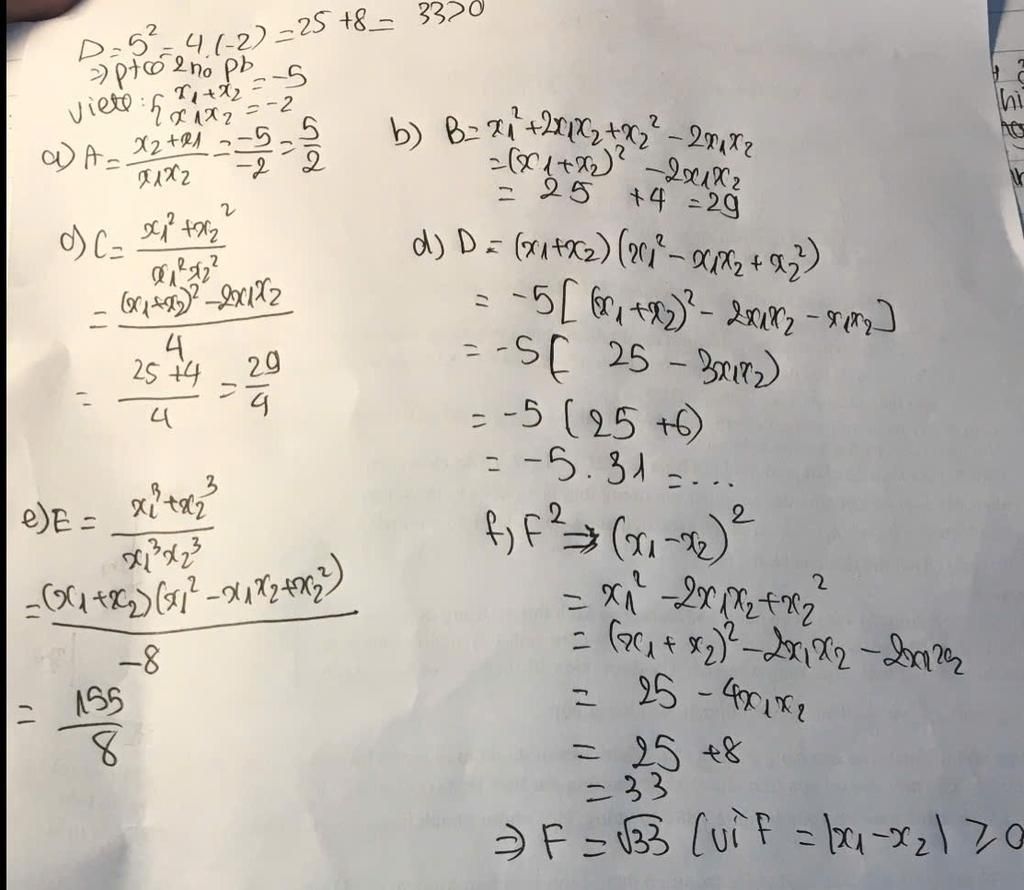 D = 5² - 4.(-2) = 25 + 8 = 33 > 0
⇒ pt có 2 no pb
Viete : { x₁ + x₂ = -5
x₁x₂ = -2
a) A = (x₂ + x₁)/(x₁x₂) = -5/-2 = 5/2
b) B = x₁² + 2x₁x₂ + x₂² - 2x₁x₂
= (x₁ + x₂)² - 2x₁x₂
= 25 + 4 = 29
c) C = (x₁² + x₂²)/(x₁²x₂²)
= ((x₁ + x₂)² - 2x₁x₂)/4
= (25 + 4)/4 = 29/4
d) D = (x₁ + x₂)(x₁² - x₁x₂ + x₂²)
= -5[(x₁ + x₂)² - 2x₁x₂ - x₁x₂]
= -5[ 25 - 3x₁x₂)
= -5 (25 + 6)
= -5 . 31 = ...
e) E = (x₁³ + x₂³)/(x₁³x₂³)
= (x₁ + x₂)(x₁² - x₁x₂ + x₂²)/-8
= 155/8
f, F² ⇒ (x₁ - x₂)²
= x₁² - 2x₁x₂ + x₂²
= (x₁ + x₂)² - 2x₁x₂ - 2x₁x₂
= 25 - 4x₁x₂
= 25 + 8
= 33
⇒ F = √33 (vì F = |x₁ - x₂| ≥ 0